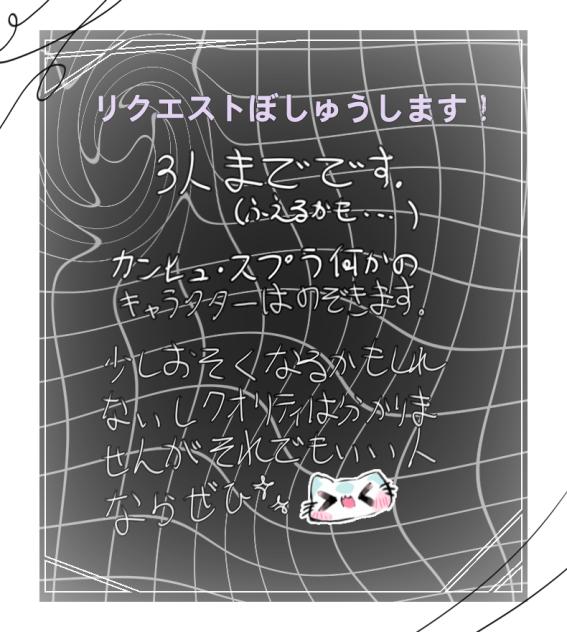 リクエストぼしゅうします!
3人までです.
(ふえるかも...)
カンヒュ・スプラ何かの
キャラクターはのぞきます。
少しおそくなるかもしれ
ないしクオリティは分かりま
せんがそれでもいい人
ならぜひ